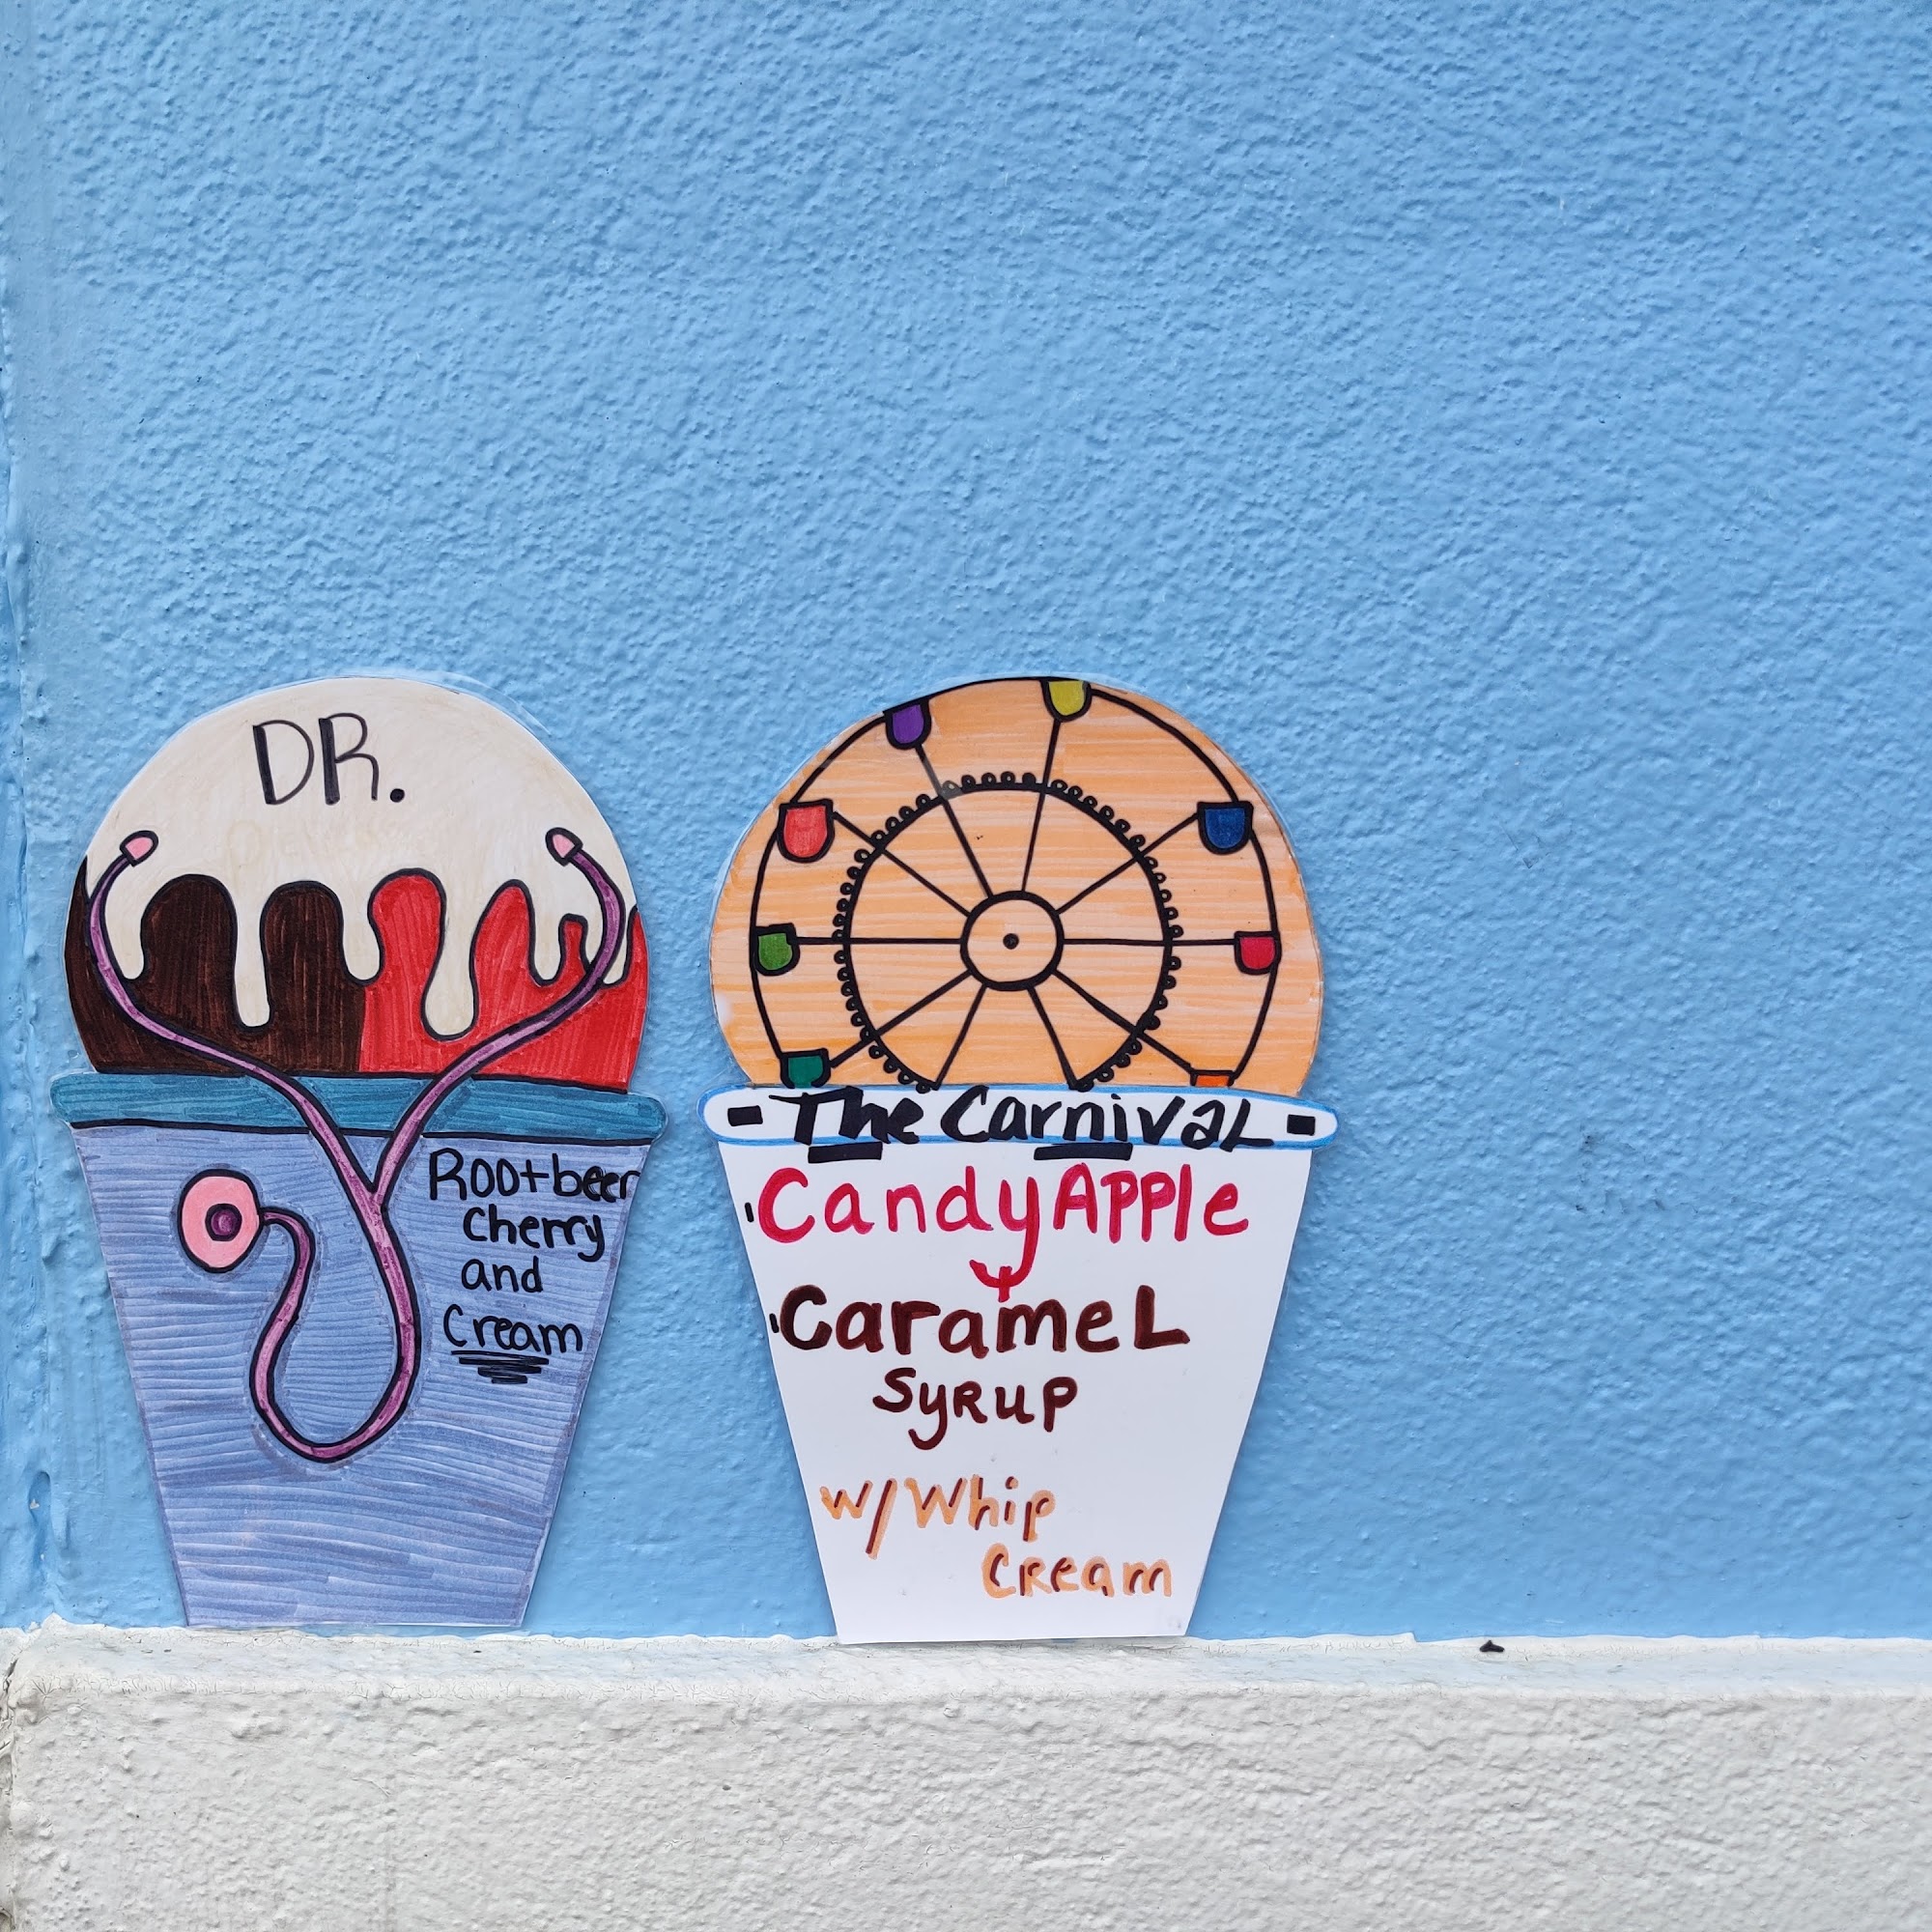 DR.
Rootbeer
cherry
and
Cream
The Carnival
Candy Apple
Caramel
Syrup
w/ Whip
Cream